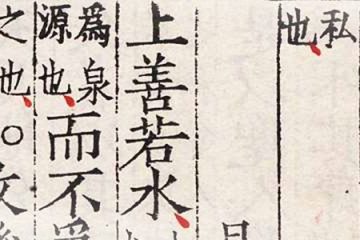 私
也
上善若水
爲泉
源也
而不
之也